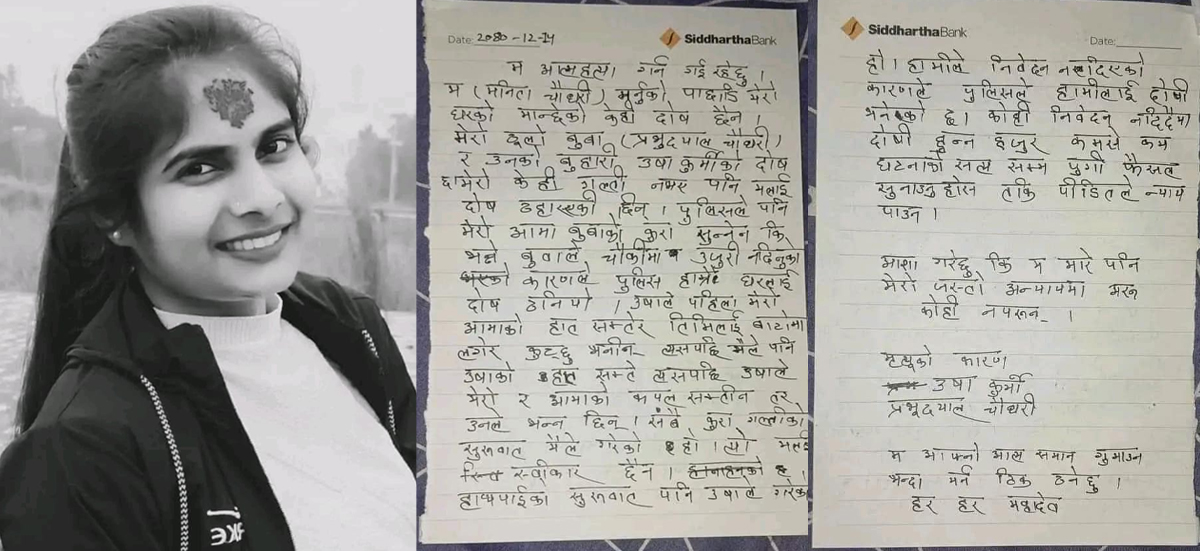 Date: 2080-12-14
SiddharthaBank
म आत्महत्या गर्न गई रहेछु ।
म (मनिता चौधरी) मर्नुको पाछाडि मेरो
घरको मान्छेको केही दोष छैन ।
मेरो ठूलो बुबा (प्रभुदयाल चौधरी)
र उनको बुहारी उषा कुर्मीको दोष
छ। मेरो केही गल्ती नभए पनि मलाई
दोष ठहराएकी छिन् । पुलिसले पनि
मेरो आमा बुवाको कुरा सुन्नेन कि
भन्ने बुवाले चौकीमा उजुरी नदिनुको
कारणले पुलिस हाम्रो घरलाई
दोष ठानियो । उषाले पहिला मेरो
आमाको हात समतेर तिमिलाई बाटोमा
लगेर कुट्छु भनीन् त्यसपछि मैले पनि
उषाको हात समते त्यसपछि उषाले
मेरो र आमाको कपल समतीन तर
उनले भन्न छिन् । सबै कुरा गल्तीको
सुरुवात मैले गरेको हो । त्यो मलाई
स्वीकार छैन ।
हाथपाईको सुरुवात पनि उषाले गरेको
SiddharthaBank
Date:
हो । हामीले निवेदन नदिएको
कारणले पुलिसले हामीलाई दोषी
भनेको छ । कोही निवेदन नदिदैमा
दोषी हुन्न हजुर कमसे कम
घटनाको सत्य सम्म पुगी फैसला
सुनाउनुहोस ताकि पीडितले न्याय
पाउन ।
आशा गरेछु कि म मारे पनि
मेरो जस्तो अन्यायमा मरन
कोही नपरून् ।
मृत्यूको कारण
उषा कुर्मी
प्रभुदयाल चौधरी
म आफ्नो आत्म समान गुमाउन
भन्दा मर्न ठिक ठनेछु ।
हर हर महादेव